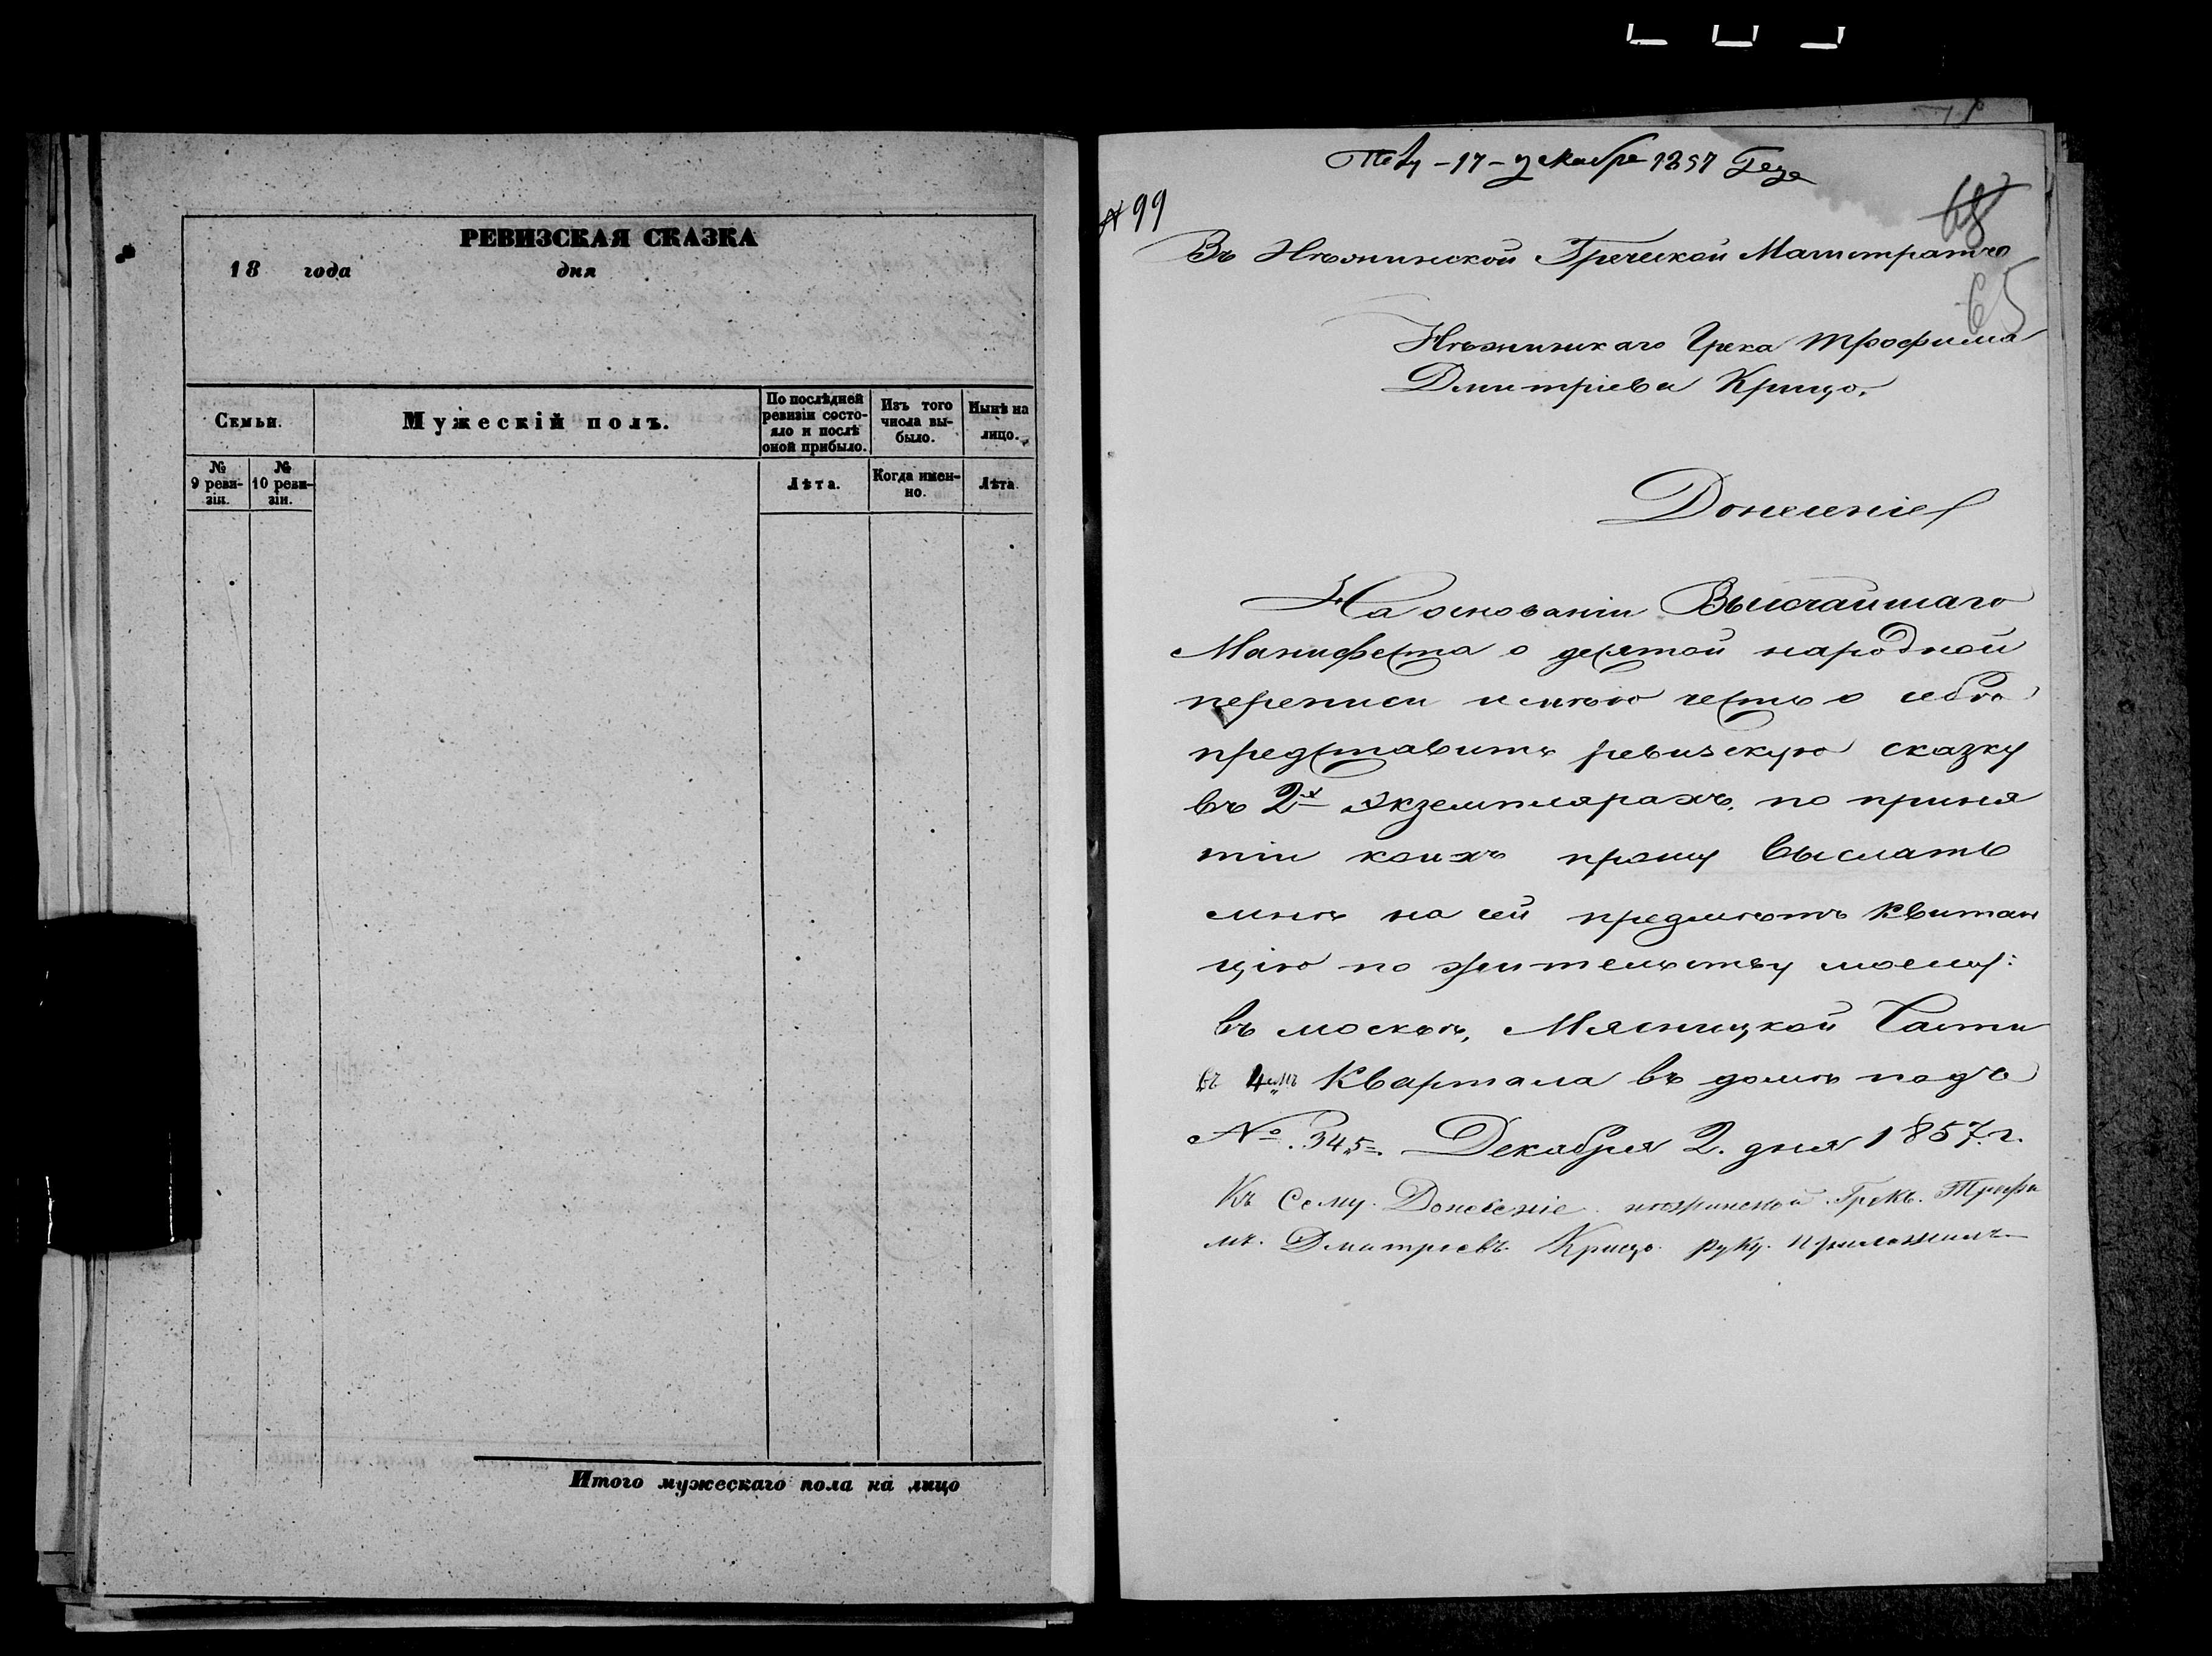 РЕВИЗСКАЯ СКАЗКА
18 года дня
Семьи.
Мужескій полъ.
По послѣдней ревизіи состо-
яло и послѣ
оной прибыло.
Изъ того
числа вы-
было.
Нынѣ на
лицо.
№
9 реви-
зіи.
№
10 реви-
зіи.
Лѣта.
Когда имен-
но.
Лѣта
Итого мужескаго пола на лицо
17 декабря 1857 Года
№ 99
68
Въ Нѣжинской Греческой Магистратъ
65
Нѣжинскаго Грека Трофима
Дмитріева Крицо.
Донесеніе
На основаніи Высочайшаго
Манифеста о десятой народной
переписи имѣю честь о себѣ
представить ревизскую сказку
въ 2х экземплярахъ. по приня
тіи коихъ прошу выслать
мнѣ на сей предметъ Квитан
цію по жительству моему:
въ москвѣ, Мясницкой Части
въ 4мъ Квартала въ домѣ подъ
№ 345. Декабря 2. дня 1857. г.
Къ Сему Донесеніе нѣжинской Грекъ. Трофи
мъ. Дмитревъ Крицо руку приложилъ